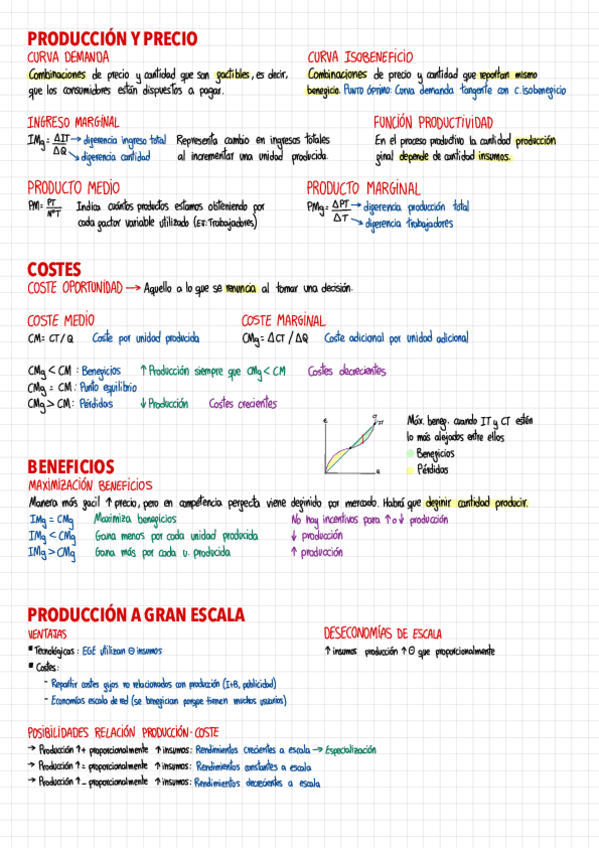 PRODUCCIÓN Y PRECIO
CURVA DEMANDA
Combinaciones de precio y cantidad que son factibles, es decir,
que los consumidores están dispuestos a pagar.
CURVA ISOBENEFICIO
Combinaciones de precio y cantidad que reportan mismo
beneficio. Punto óptimo: Curva demanda tangente con c. isobeneficio
INGRESO MARGINAL
IMg = ΔIT / ΔQ → diferencia ingreso total
→ diferencia cantidad
Representa cambio en ingresos totales
al incrementar una unidad producida.
FUNCIÓN PRODUCTIVIDAD
En el proceso productivo la cantidad producción
final depende de cantidad insumos.
PRODUCTO MEDIO
PM = PT / NºT
Indica cuántos productos estamos obteniendo por
cada factor variable utilizado (Ej: Trabajadores)
PRODUCTO MARGINAL
PMg = ΔPT / ΔT → diferencia producción total
→ diferencia trabajadores
COSTES
COSTE OPORTUNIDAD → Aquello a lo que se renuncia al tomar una decisión.
COSTE MEDIO
CM = CT / Q Coste por unidad producida
COSTE MARGINAL
CMg = ΔCT / ΔQ Coste adicional por unidad adicional
CMg < CM : Beneficios ↑ Producción siempre que CMg < CM Costes decrecientes
CMg = CM : Punto equilibrio
CMg > CM : Pérdidas ↓ Producción Costes crecientes
Máx. benef. cuando IT y CT estén
lo más alejados entre ellos
Beneficios
Pérdidas
BENEFICIOS
MAXIMIZACIÓN BENEFICIOS
Manera más fácil ↑ precio, pero en competencia perfecta viene definido por mercado. Habrá que definir cantidad producir.
IMg = CMg Maximiza beneficios No hay incentivos para ↑ o ↓ producción
IMg < CMg Gana menos por cada unidad producida ↓ producción
IMg > CMg Gana más por cada u. producida ↑ producción
PRODUCCIÓN A GRAN ESCALA
VENTAJAS
▪ Tecnológicas : EGE utilizan ⊖ insumos
▪ Costes:
- Repartir costes fijos no relacionados con producción (I+D, publicidad)
- Economías escala de red (se benefician porque tienen muchos usuarios)
DESECONOMÍAS DE ESCALA
↑ insumos producción ↑ ⊖ que proporcionalmente
POSIBILIDADES RELACIÓN PRODUCCIÓN-COSTE
→ Producción ↑ + proporcionalmente ↑ insumos: Rendimientos crecientes a escala → Especialización
→ Producción ↑ = proporcionalmente ↑ insumos: Rendimientos constantes a escala
→ Producción ↑ - proporcionalmente ↑ insumos: Rendimientos decrecientes a escala